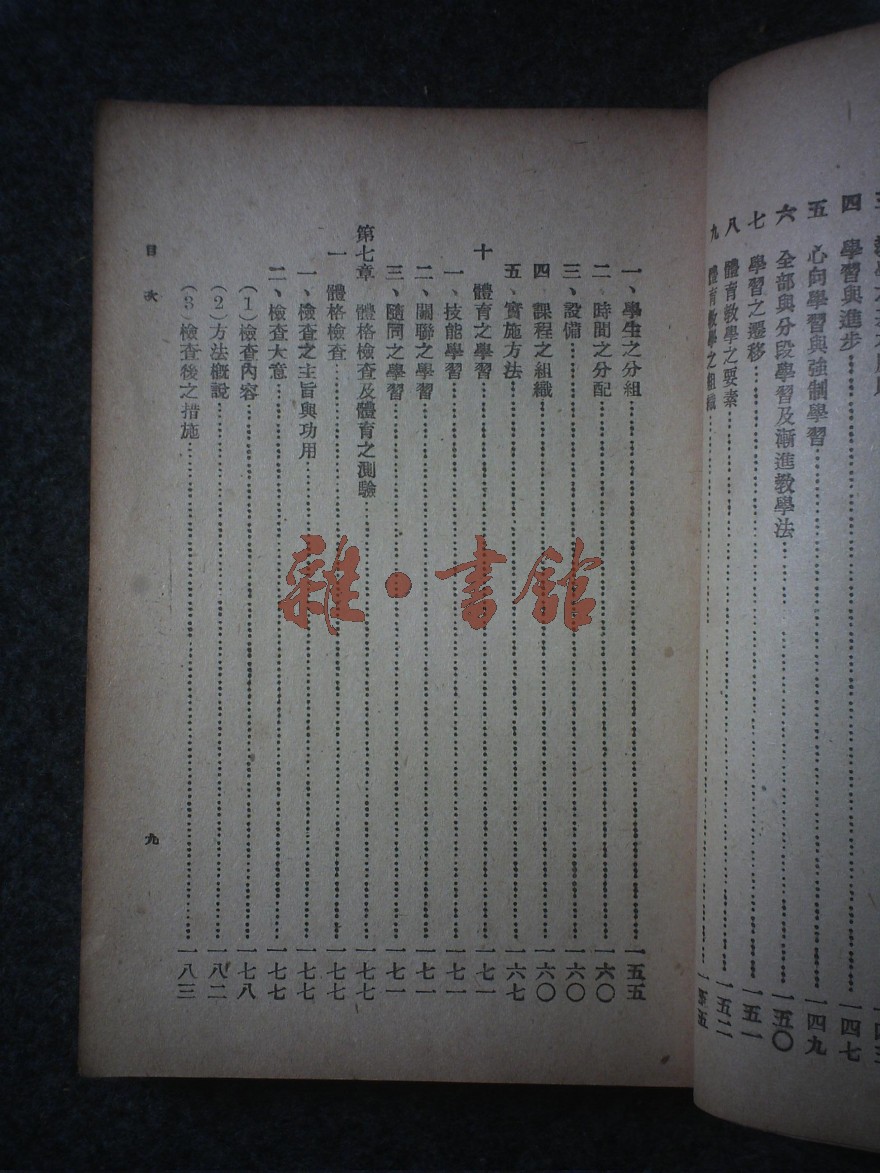 四　學習與進步……一四七
五　心向學習與強制學習……一四九
六　全部與分段學習及漸進教學法……一五〇
七　學習之遷移……一五一
八　體育教學之要素……一五二
九　體育教學之組織……一五五
一、學生之分組……一五五
二、時間之分配……一六〇
三、設備……一六〇
四　課程之組織……一六〇
五、實施方法……一六七
十　體育之學習……一七一
一、技能學習……一七一
二、關聯之學習……一七一
三、隨同之學習……一七一
第七章　體格檢查及體育之測驗……一七七
一　體格檢查……一七七
一、檢查之主旨與功用……一七七
二、檢查大意……一七七
（1）檢查內容……一七八
（2）方法概說……一八二
（3）檢查後之措施……一八三
目次　九
雜·書館